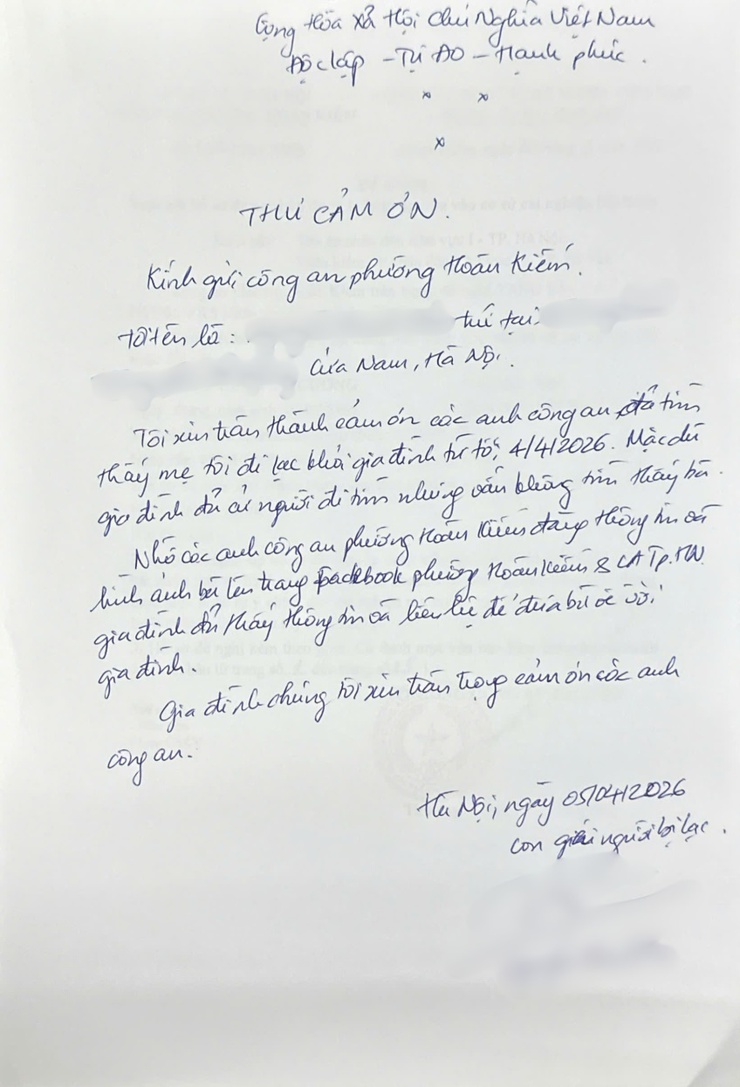 Cộng Hòa Xã Hội Chủ Nghĩa Việt Nam
Độc lập - Tự Do - Hạnh phúc.
x x
x
THƯ CẢM ƠN.
Kính gửi công an phường Hoàn Kiếm.
Tôi tên là: trú tại:
Cửa Nam, Hà Nội.
Tôi xin trân thành cảm ơn các anh công an đã tìm
thấy mẹ tôi đi lạc khỏi gia đình từ tối 4/4/2026. Mặc dù
gia đình đã cử người đi tìm nhưng vẫn không tìm thấy bà.
Nhờ các anh công an phường Hoàn Kiếm đăng thông tin và
hình ảnh bà lên trang facebook phường Hoàn Kiếm & CA Tp.HN
gia đình đã thấy thông tin và liên hệ để đưa bà về với
gia đình.
Gia đình chúng tôi xin trân trọng cảm ơn các anh
công an.
Hà Nội, ngày 05/04/2026
con gái người bị lạc.